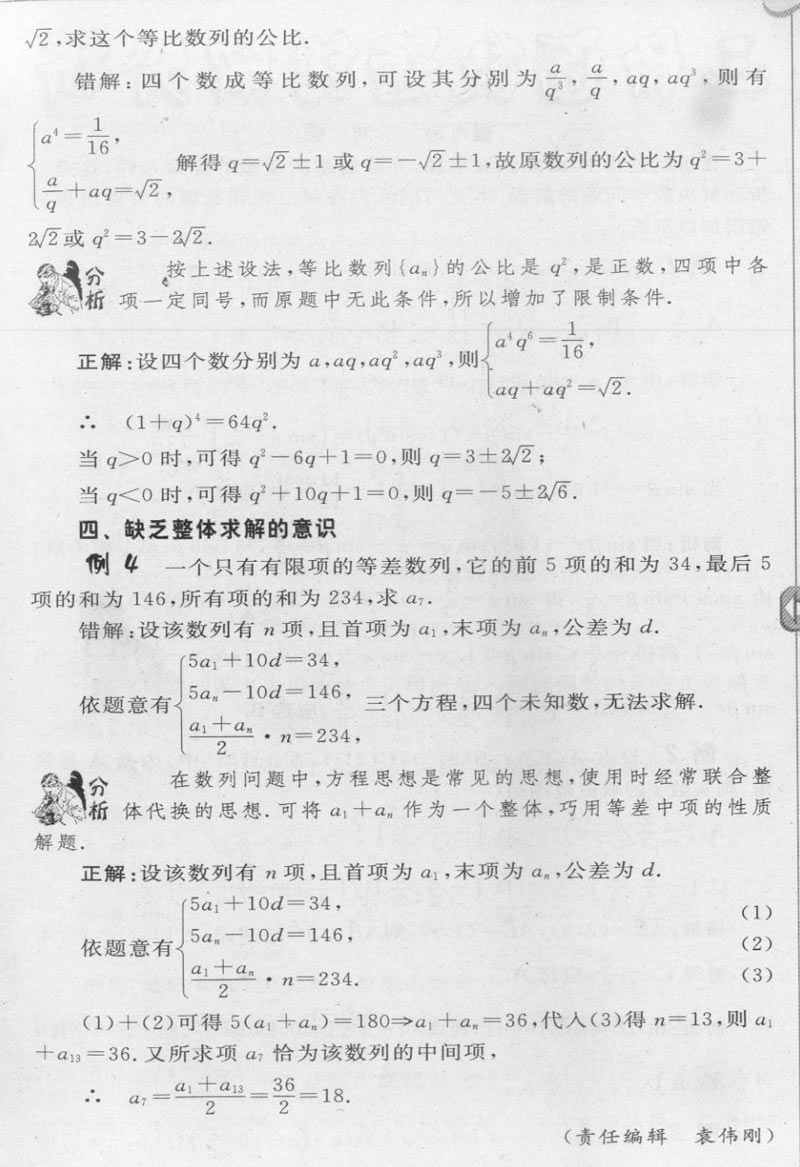 √2,求这个等比数列的公比.
错解:四个数成等比数列,可设其分别为 a/q³, a/q, aq, aq³,则有
{a⁴=1/16, a/q+aq=√2, 解得 q=√2±1 或 q=-√2±1,故原数列的公比为 q²=3+
2√2或 q²=3-2√2.
分析 按上述设法,等比数列{aₙ}的公比是 q²,是正数,四项中各
项一定同号,而原题中无此条件,所以增加了限制条件.
正解:设四个数分别为 a,aq,aq²,aq³,则{a⁴q⁶=1/16, aq+aq²=√2.
∴ (1+q)⁴=64q².
当 q>0 时,可得 q²-6q+1=0,则 q=3±2√2;
当 q<0 时,可得 q²+10q+1=0,则 q=-5±2√6.
四、缺乏整体求解的意识
例 4 一个只有有限项的等差数列,它的前 5 项的和为 34,最后 5
项的和为 146,所有项的和为 234,求 a₇.
错解:设该数列有 n 项,且首项为 a₁,末项为 aₙ,公差为 d.
依题意有{5a₁+10d=34, 5aₙ-10d=146, (a₁+aₙ)/2·n=234, 三个方程,四个未知数,无法求解.
分析 在数列问题中,方程思想是常见的思想,使用时经常联合整
体代换的思想.可将 a₁+aₙ 作为一个整体,巧用等差中项的性质
解题.
正解:设该数列有 n 项,且首项为 a₁,末项为 aₙ,公差为 d.
依题意有{5a₁+10d=34, (1)
5aₙ-10d=146, (2)
(a₁+aₙ)/2·n=234. (3)
(1)+(2)可得 5(a₁+aₙ)=180⇒a₁+aₙ=36,代人(3)得 n=13,则 a₁
+a₁₃=36.又所求项 a₇ 恰为该数列的中间项,
∴ a₇=(a₁+a₁₃)/2=36/2=18.
(责任编辑 袁伟刚)